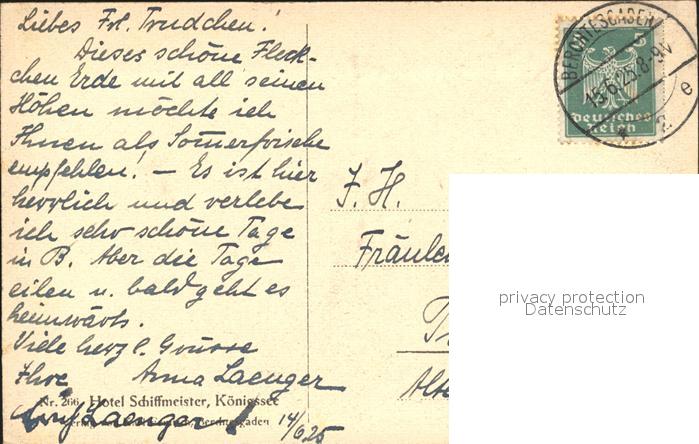 Liebes Frl. Trudchen!
Dieses schöne Fleck-
chen Erde mit all seinen
Höhen möchte ich
Ihnen als Somerfrische
empfehlen! – Es ist hier
herrlich und verlebe
ich sehr schöne Tage
in B. Aber die Tage
eilen u. bald geht es
heimwärts.
Viele herzl. Grüsse
Ihre Anna Laenger
Nr. 266 Hotel Schiffmeister, Königssee
Laenger!
Berchtesgaden 14/6 25
BERCHTESGADEN
15.6.25.8-9V
e
* 2
5
Deutsches
Reich
F. H.
Fräulein
privacy protection
Datenschutz